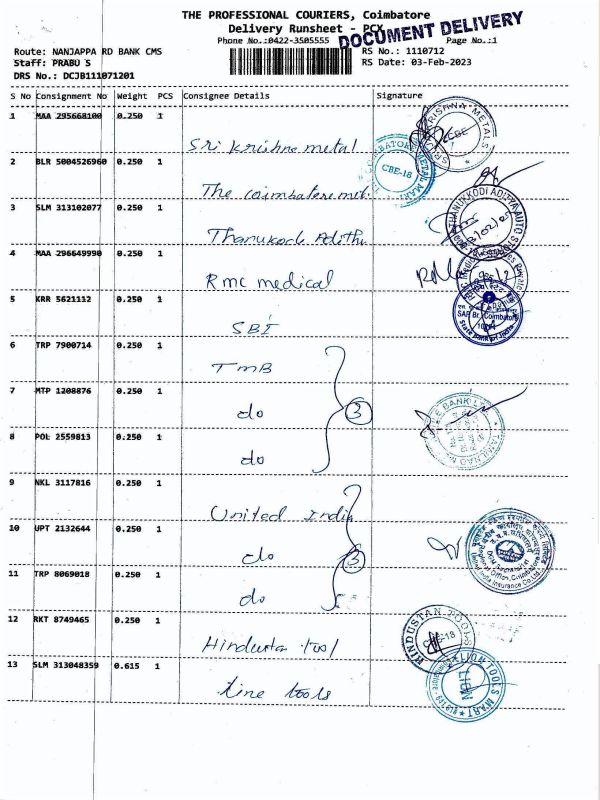 THE PROFESSIONAL COURIERS, Coimbatore
Delivery Runsheet - PCX
DOCUMENT DELIVERY
Phone No.:0422-3505555 Page No.:1
Route: NANJAPPA RD BANK CMS RS No.: 1110712
Staff: PRABU S RS Date: 03-Feb-2023
DRS No.: DCJB111071201
S No Consignment No Weight PCS Consignee Details Signature
1 MAA 295668100 0.250 1
Sri Krishna metal
SRI KRISHNA METALS CBE
2 BLR 5004526960 0.250 1
The coimbatore met.
COIMBATORE METAL MART CBE-18
3 SLM 313102077 0.250 1
Thanukodi Adithi
THANUKKODI ADITYA AUTO
4 MAA 296649990 0.250 1
Rmc medical
5 KRR 5621112 0.250 1
SBI
SAF Br. Coimbatore
State Bank of India
6 TRP 7900714 0.250 1
TMB
7 MTP 1208876 0.250 1
do 3
8 POL 2559813 0.250 1
do
9 NKL 3117816 0.250 1
United India
10 UPT 2132644 0.250 1
do 3
United India Insurance Co Ltd.
11 TRP 8069018 0.250 1
do
12 RKT 8749465 0.250 1
Hindustan tool
HINDUSTAN TOOLS CBE-18
13 SLM 313048359 0.615 1
Line tools
LION TOOLS MART